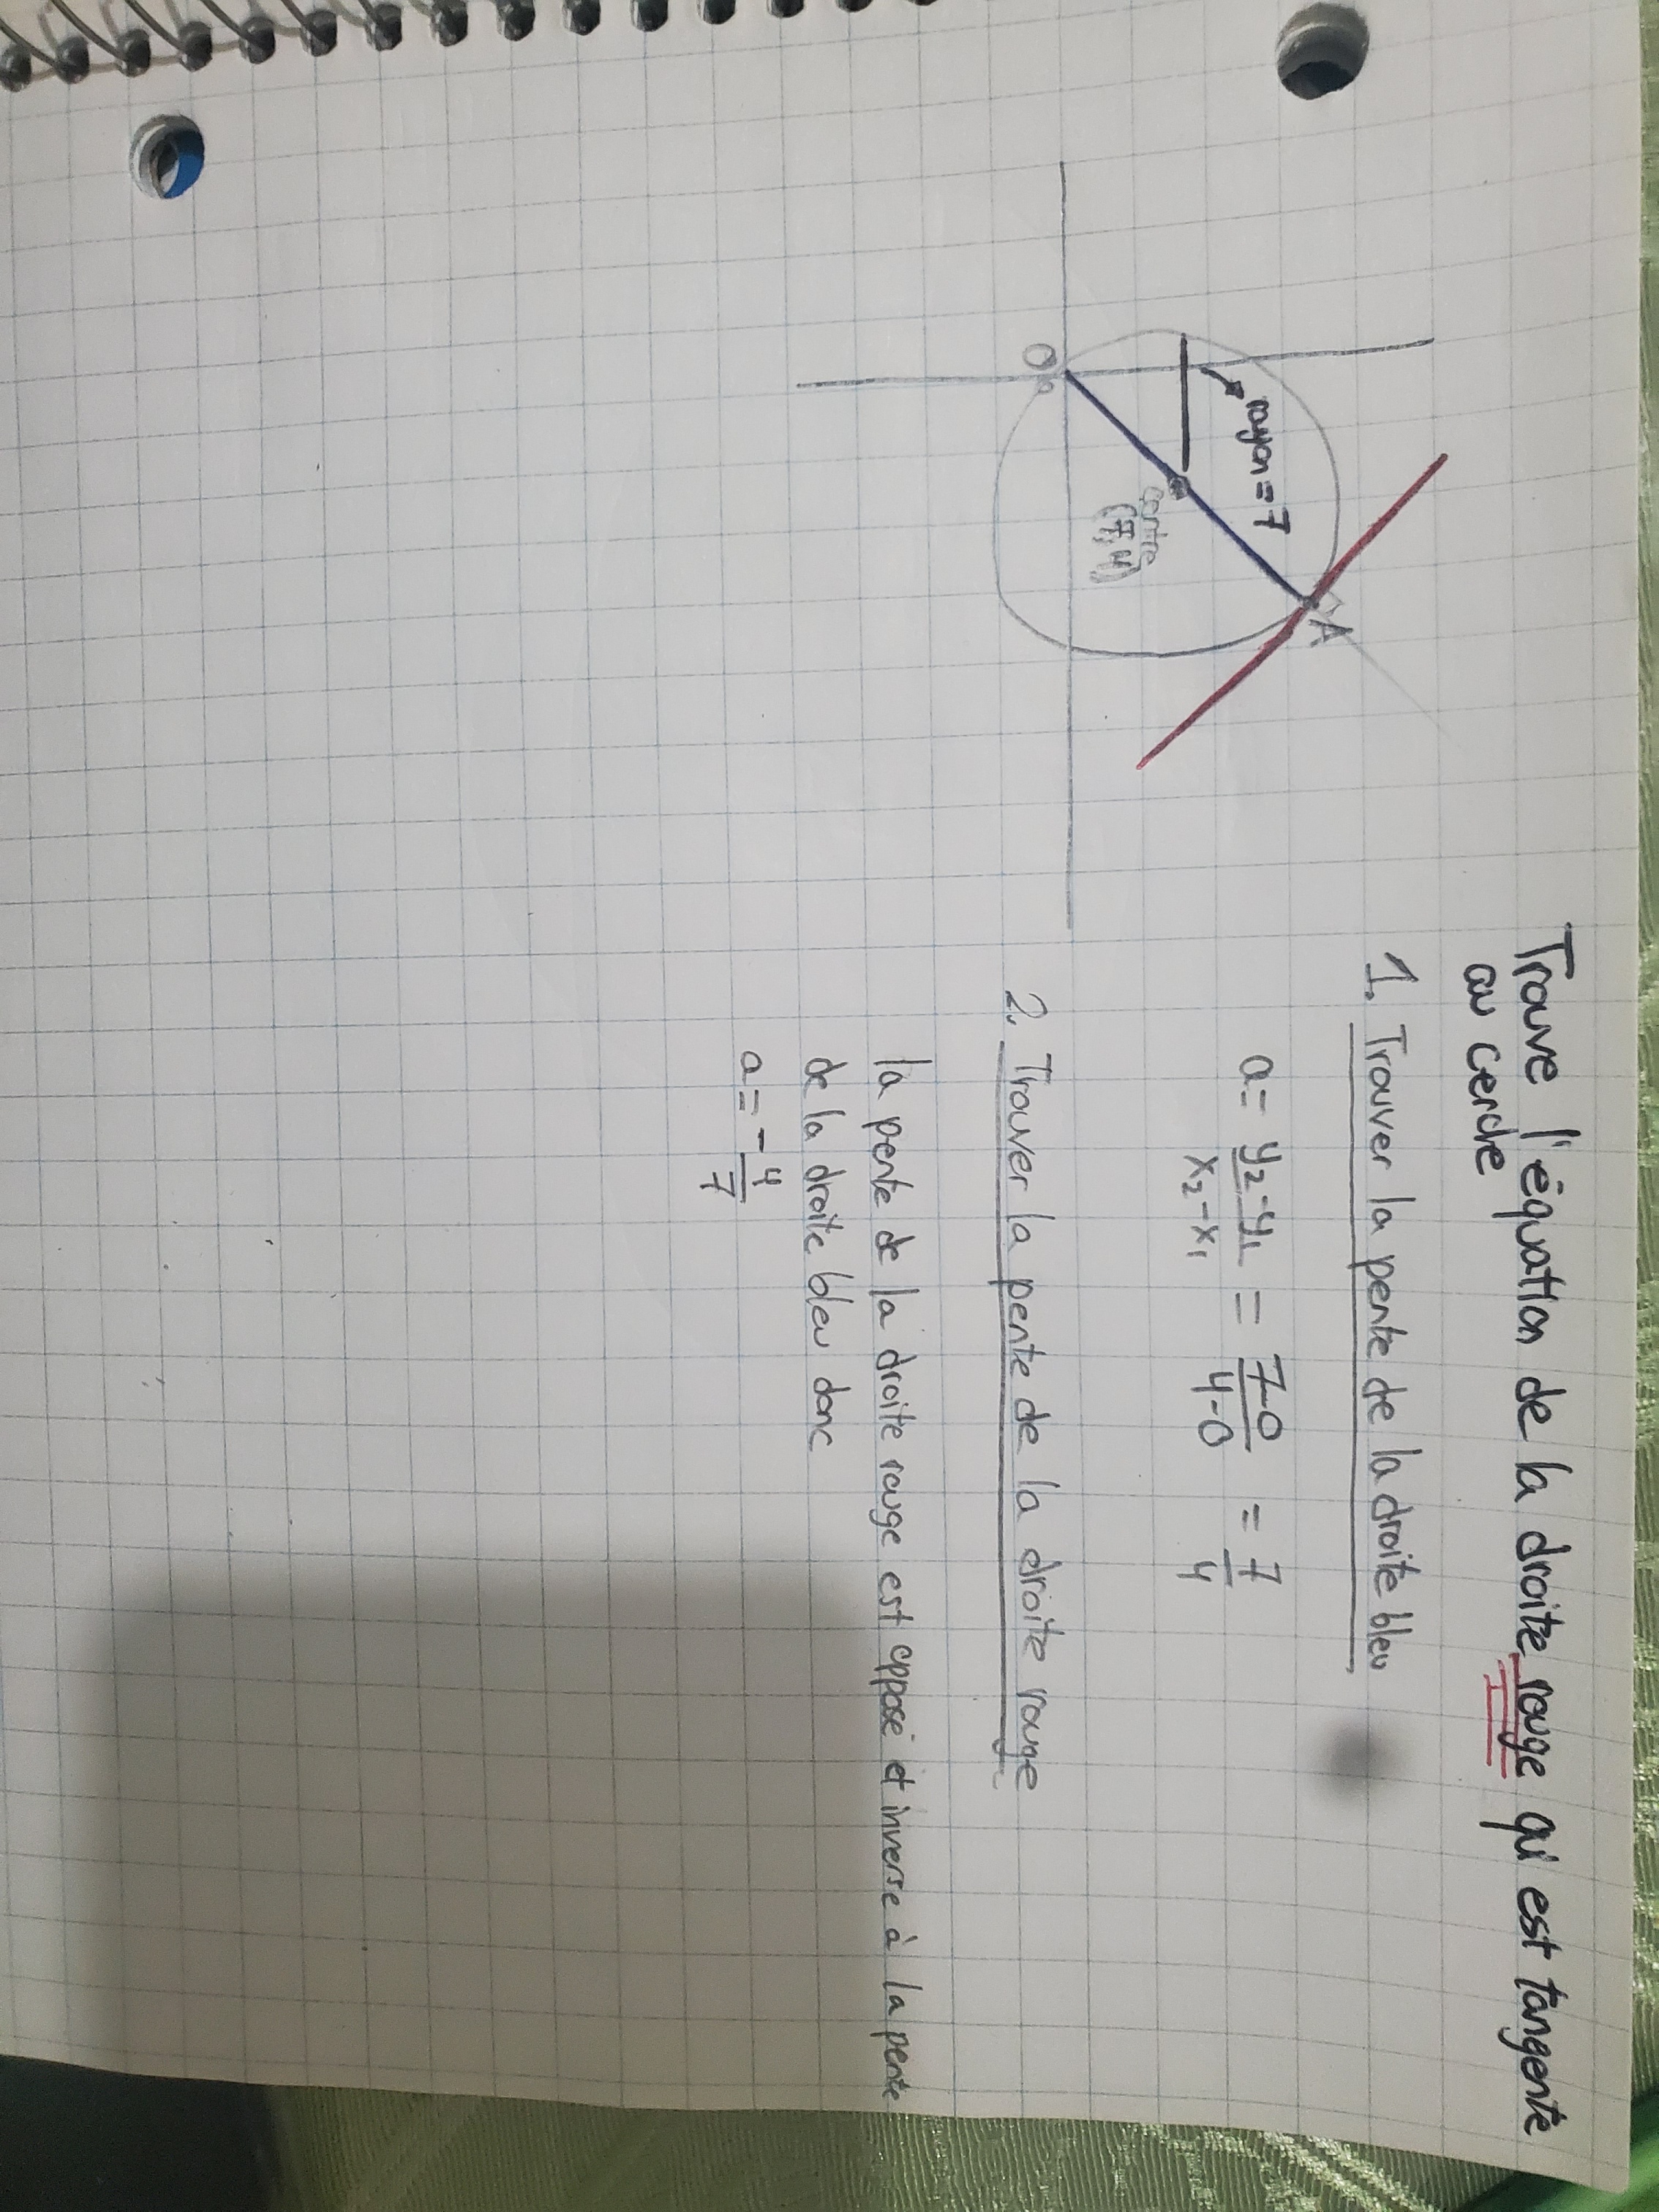 Trouve l'équation de la droite rouge qui est tangente
au cercle
1. Trouver la pente de la droite bleu
a= y₂-y₁ / x₂-x₁ = 7-0 / 4-0 = 7/4
2. Trouver la pente de la droite rouge
la pente de la droite rouge est opposé et inverse à la pente
de la droite bleu donc
a= -4/7
rayon=7
A
centre
(7,4)
O